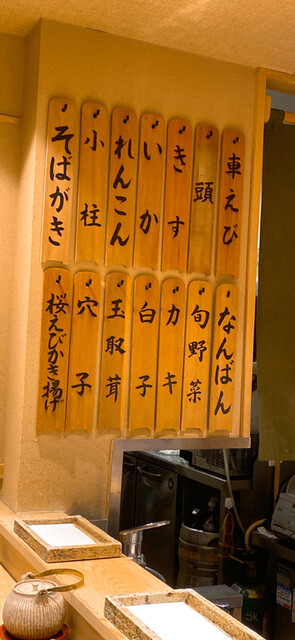 車えび
頭
きす
いか
れんこん
小柱
そばがき
なんばん
旬野菜
カキ
白子
玉取茸
穴子
桜えびかき揚げ